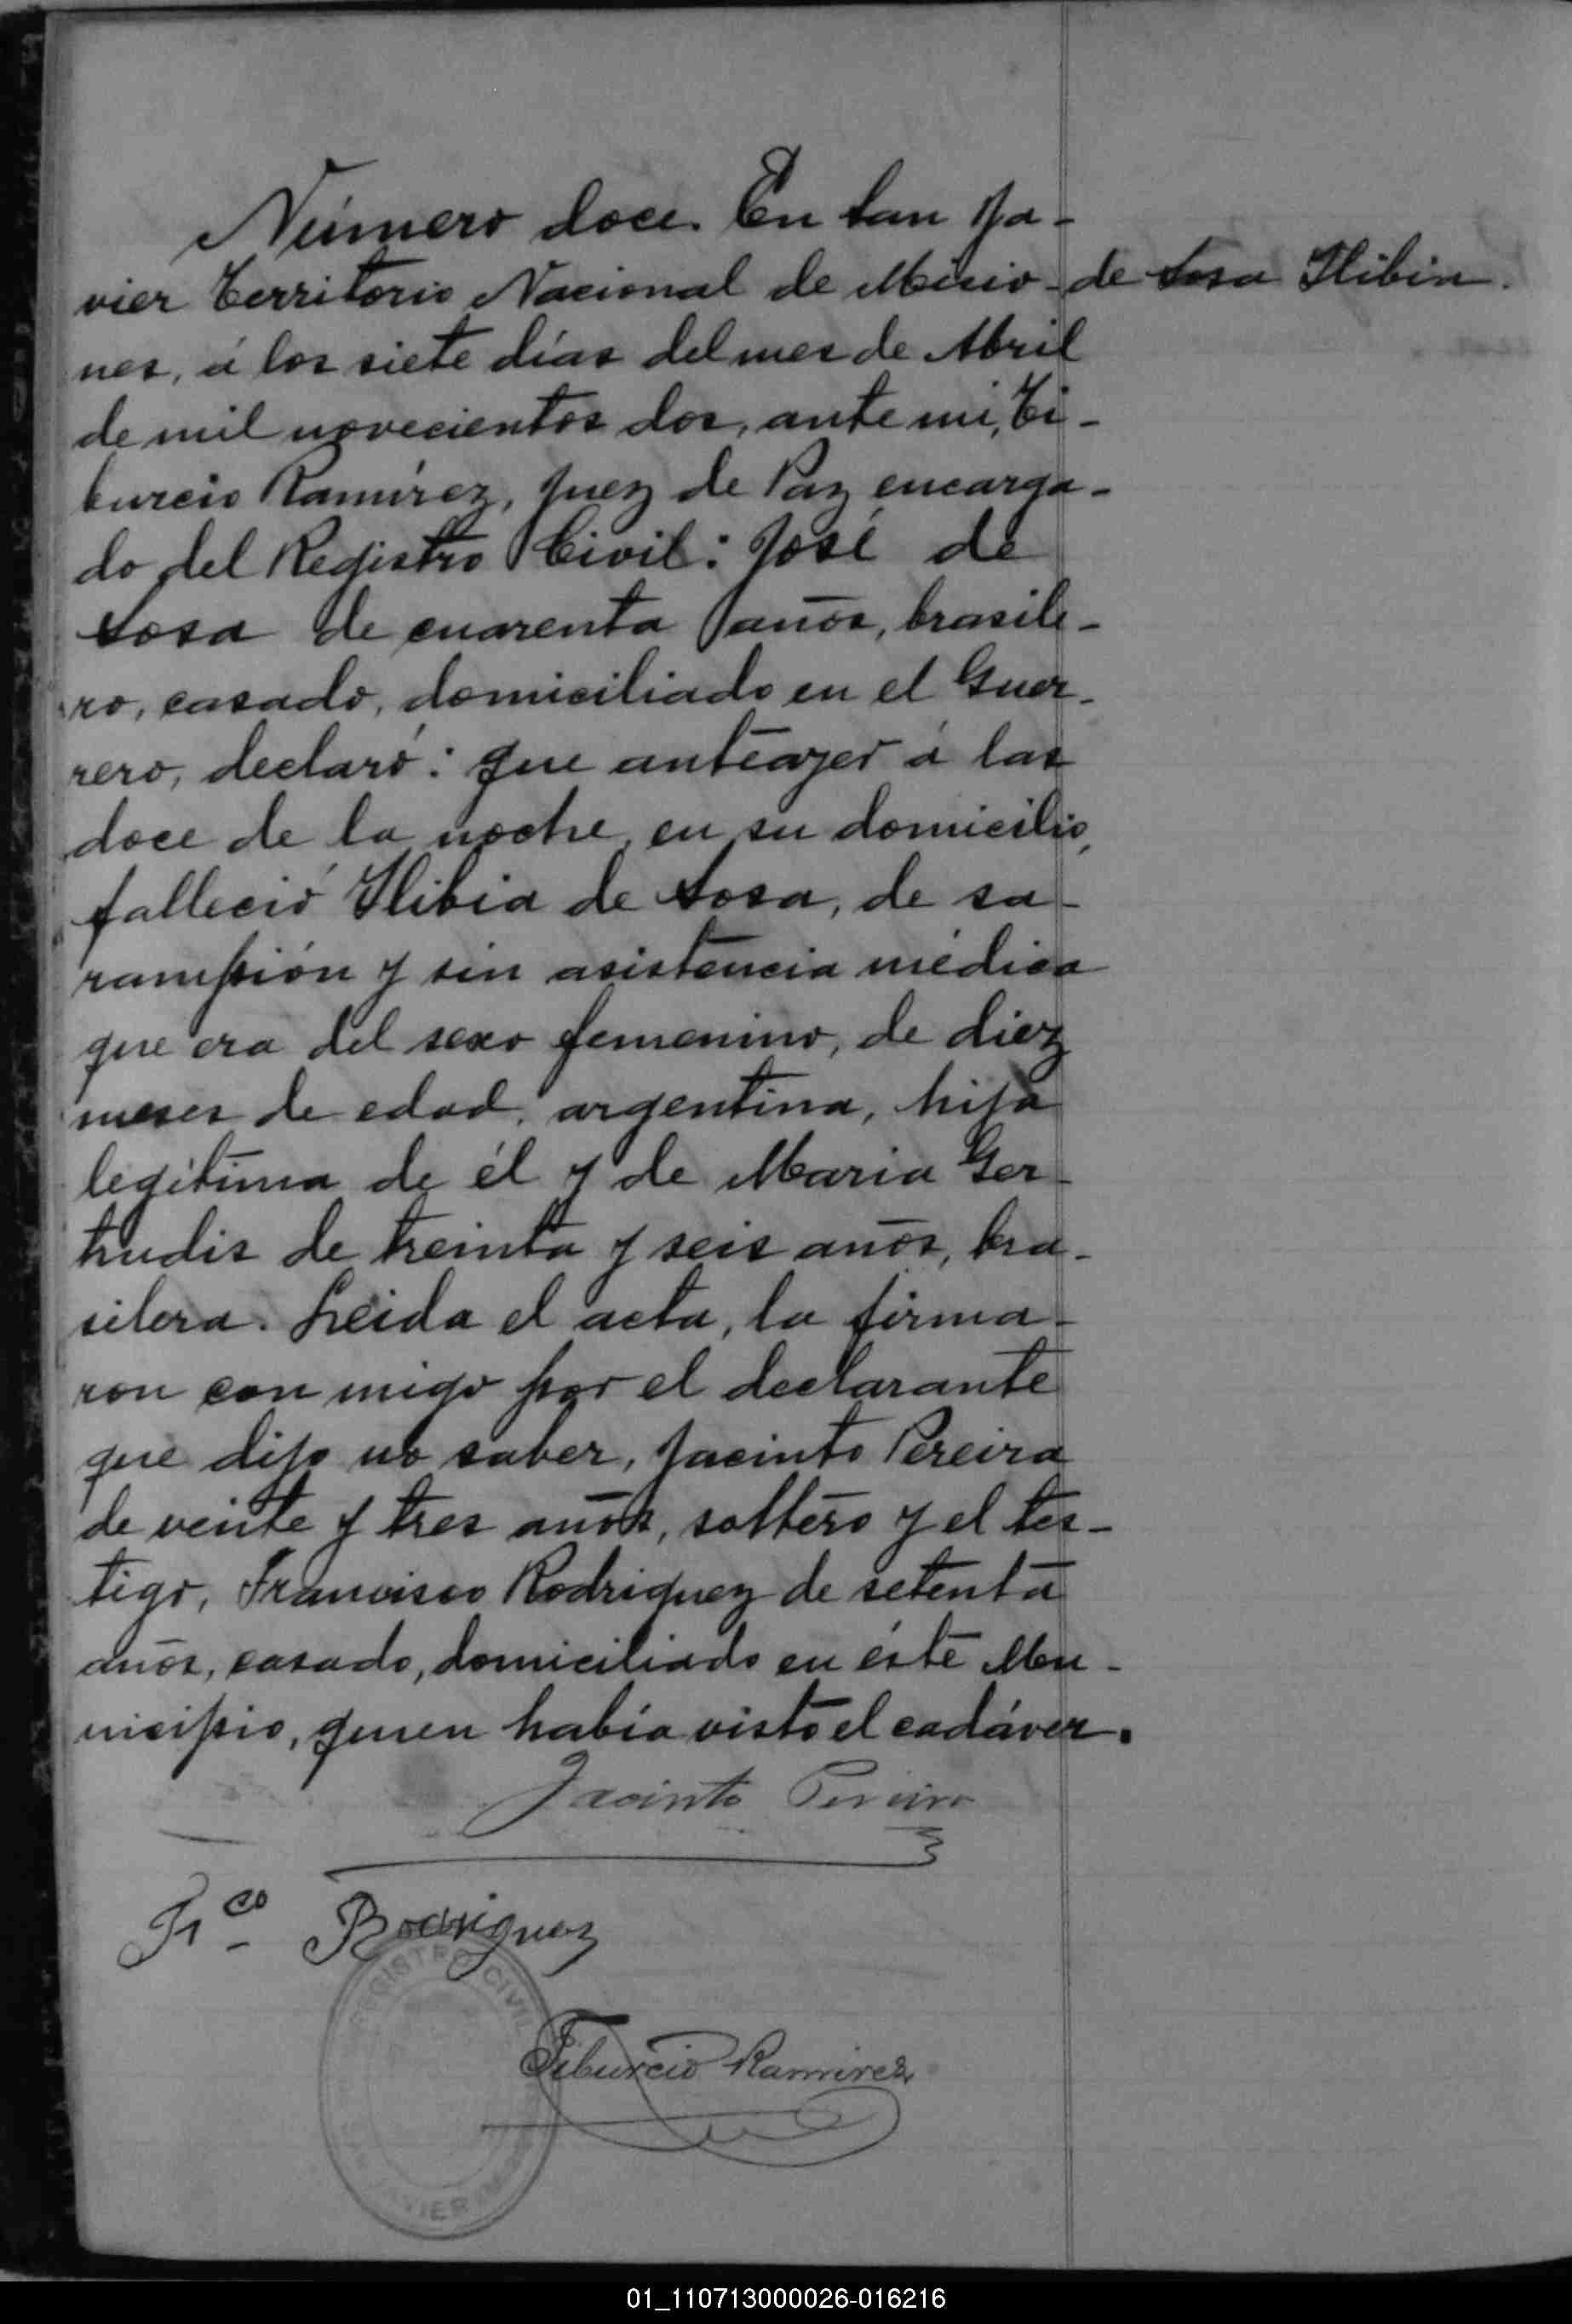 Número doce. En San Ja-
vier Territorio Nacional de Misio-
de Sosa Ilibia.
nes, á los siete días del mes de Abril
de mil novecientos dos, ante mi, Ti-
burcio Ramírez, Juez de Paz encarga-
do del Registro Civil: José de
Sosa de cuarenta años, brasile-
ro, casado, domiciliado en el Guer-
rero, declaró: Que anteayer á las
doce de la noche, en su domicilio,
falleció Ilibia de Sosa, de sa-
rampión y sin asistencia médica
que era del sexo femenino, de diez
meses de edad, argentina, hija
legítima de él y de Maria Ger-
trudis de treinta y seis años, bra-
silera. Leida el acta, la firma-
ron con migo por el declarante
que dijo no saber, Jacinto Pereira
de veinte y tres años, soltero y el tes-
tigo, Francisco Rodriguez de setenta
años, casado, domiciliado en éste Mu-
nicipio, quien había visto el cadáver.
Jacinto Pereira
Fr.co Rodriguez
REGISTRO CIVIL
Tiburcio Ramirez
JAVIER
01_110713000026-016216